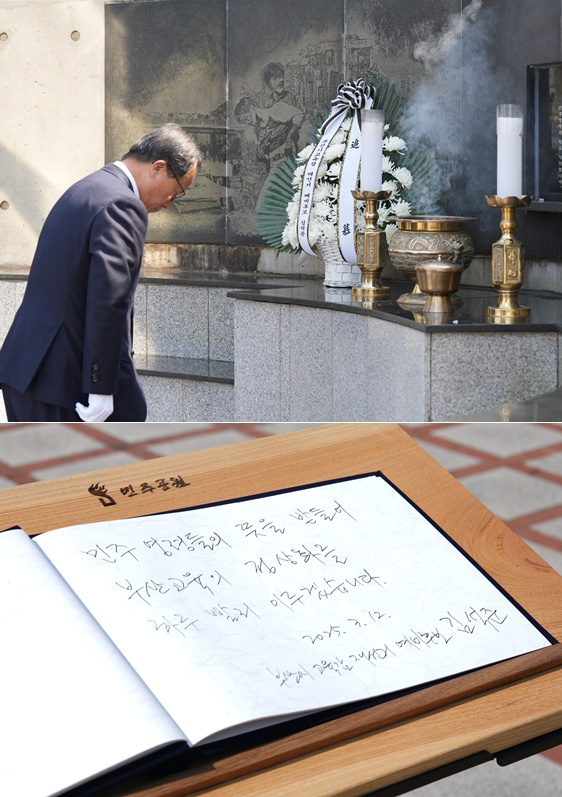 追
慕
민주공원
민주 영령들의 뜻을 받들어
부산교육의 정상화를
하루 빨리 이루겠습니다.
2025. 3. 12.
부산시 교육감 재선거 예비후보 김석준